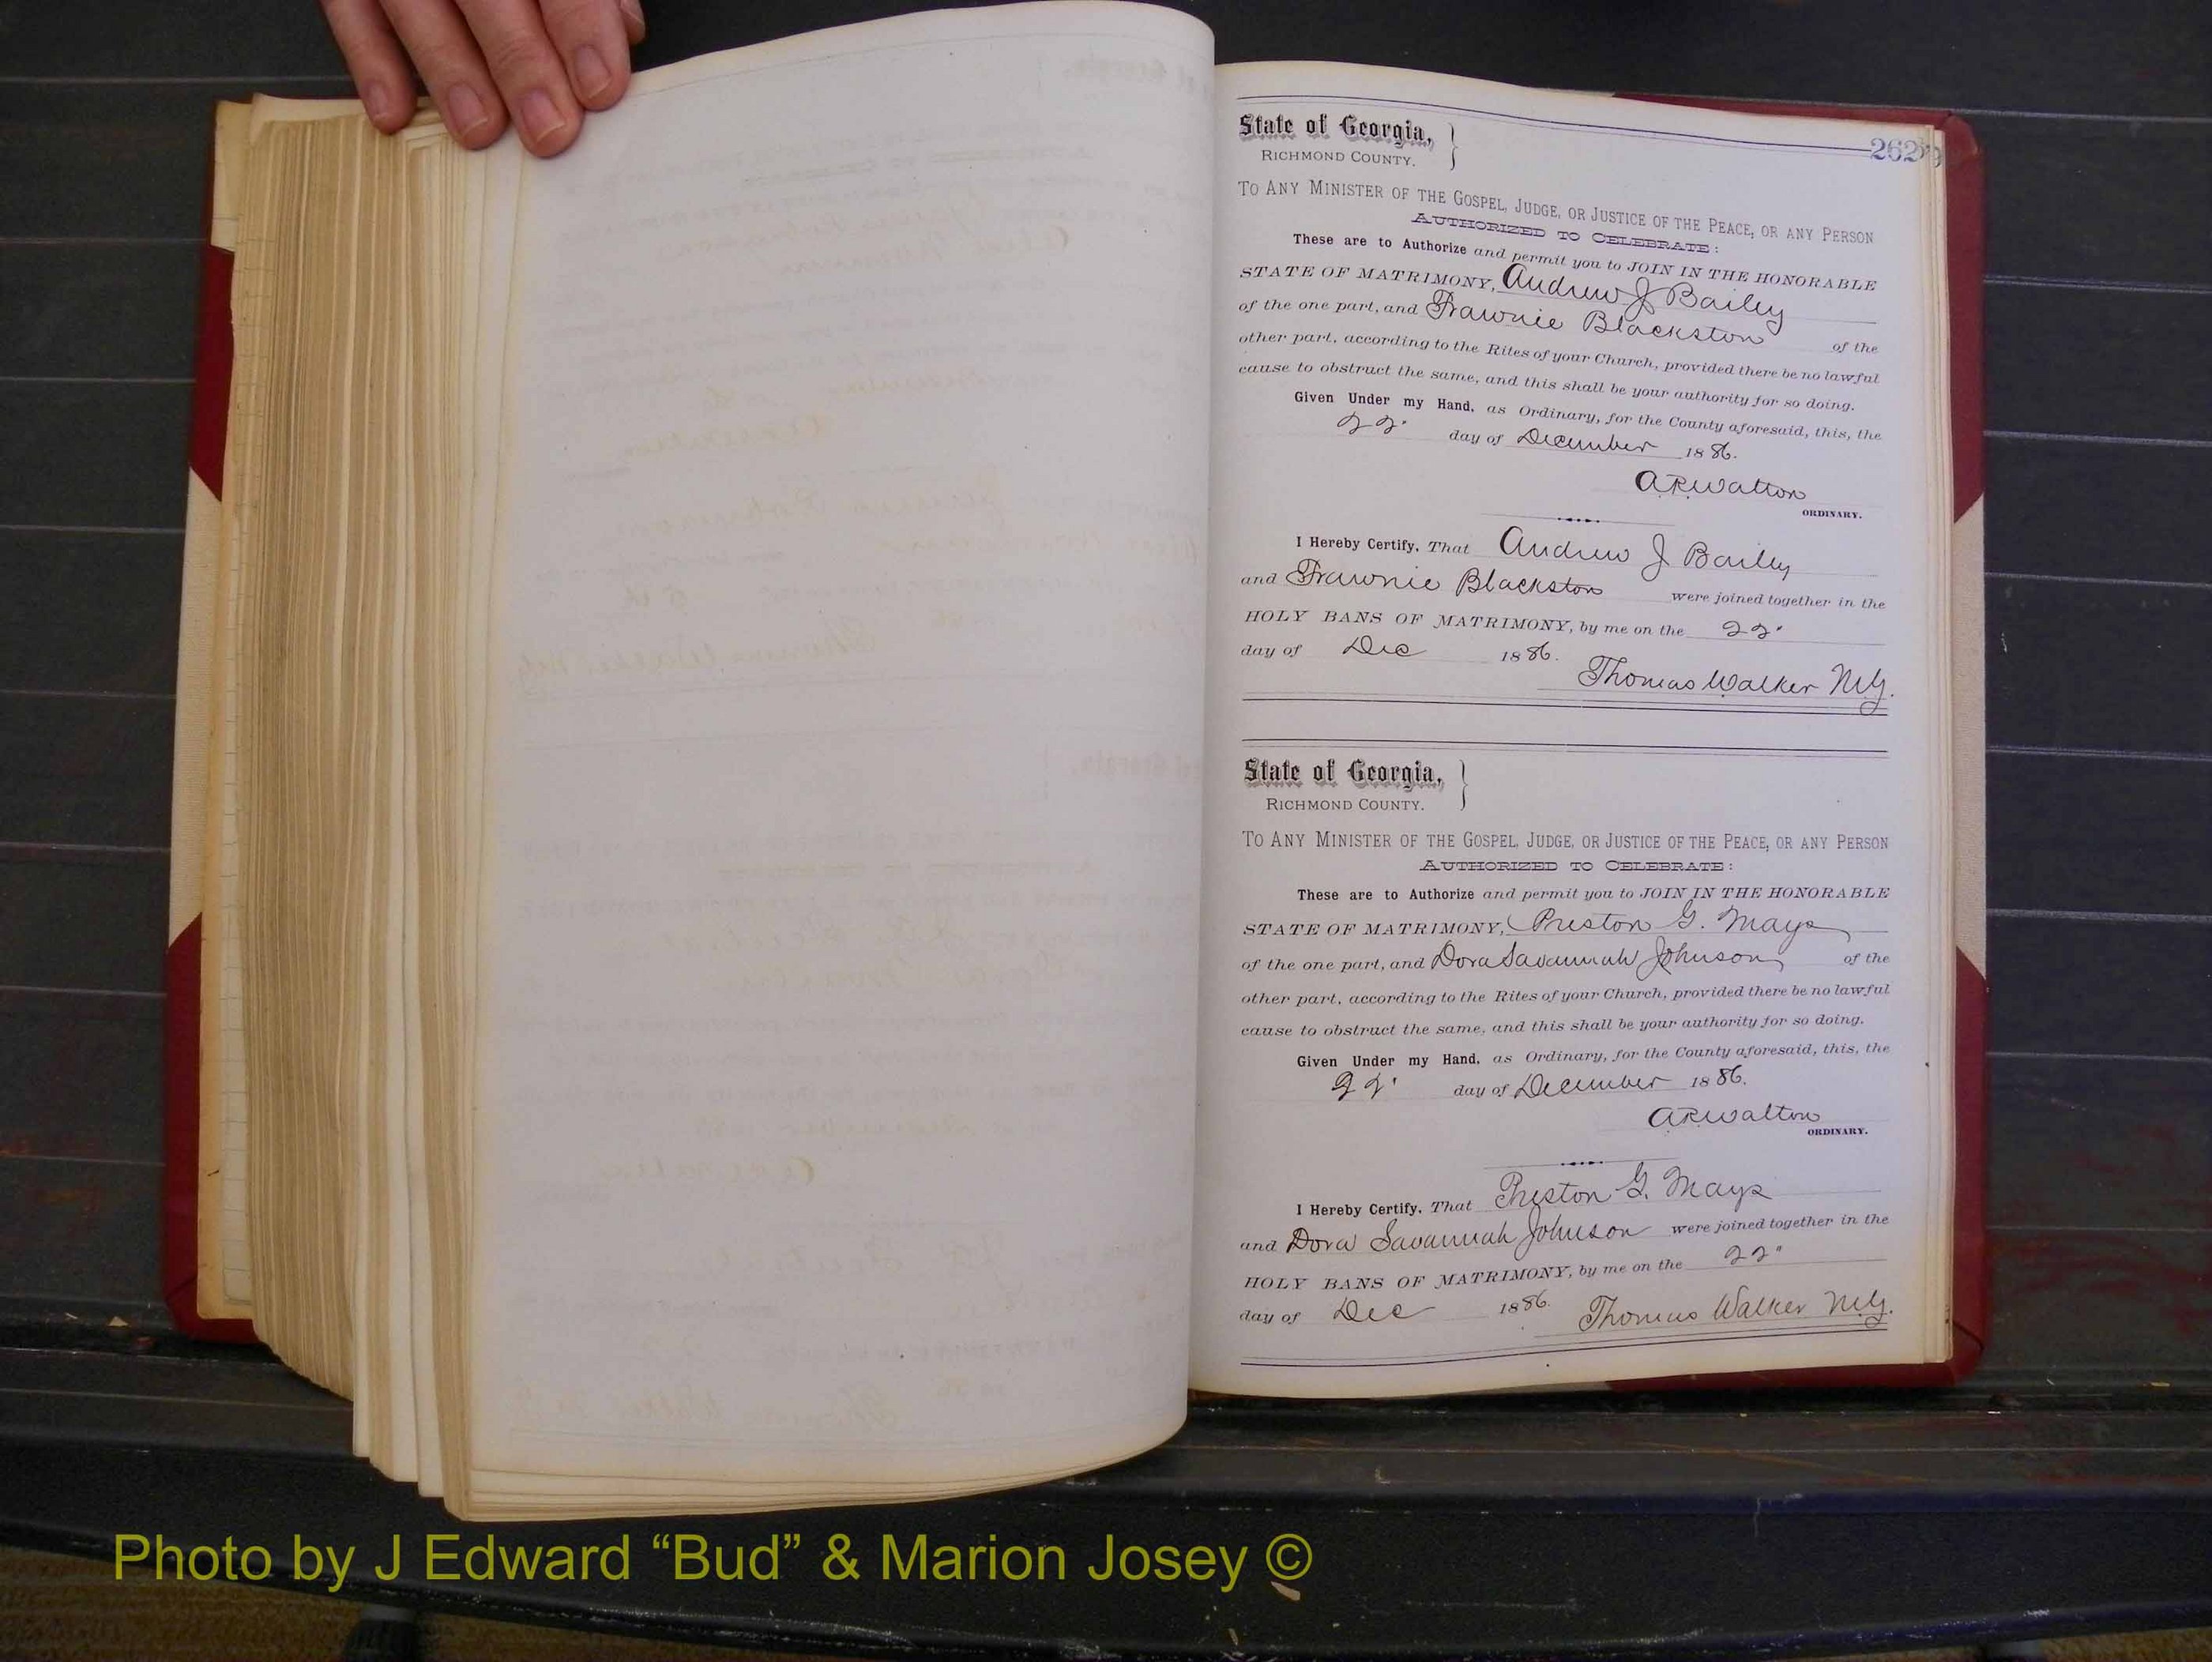 262
State of Georgia,
RICHMOND COUNTY.
TO ANY MINISTER OF THE GOSPEL, JUDGE, OR JUSTICE OF THE PEACE, OR ANY PERSON
AUTHORIZED TO CELEBRATE:
These are to Authorize and permit you to JOIN IN THE HONORABLE
STATE OF MATRIMONY, Andrew J Bailey
of the one part, and Frawnie Blackston of the
other part, according to the Rites of your Church, provided there be no lawful
cause to obstruct the same, and this shall be your authority for so doing.
Given Under my Hand, as Ordinary, for the County aforesaid, this, the
22" day of December 1886.
A.R. Walton
ORDINARY.
I Hereby Certify, That Andrew J Bailey
and Frawnie Blackston were joined together in the
HOLY BANS OF MATRIMONY, by me on the 22"
day of Dec 1886.
Thomas Walker M.G.
State of Georgia,
RICHMOND COUNTY.
TO ANY MINISTER OF THE GOSPEL, JUDGE, OR JUSTICE OF THE PEACE, OR ANY PERSON
AUTHORIZED TO CELEBRATE:
These are to Authorize and permit you to JOIN IN THE HONORABLE
STATE OF MATRIMONY, Preston G. Mays
of the one part, and Dora Savannah Johnson of the
other part, according to the Rites of your Church, provided there be no lawful
cause to obstruct the same, and this shall be your authority for so doing.
Given Under my Hand, as Ordinary, for the County aforesaid, this, the
22" day of December 1886.
A.R. Walton
ORDINARY.
I Hereby Certify, That Preston G. Mays
and Dora Savannah Johnson were joined together in the
HOLY BANS OF MATRIMONY, by me on the 22"
day of Dec 1886. Thomas Walker M.G.
Photo by J Edward “Bud” & Marion Josey ©